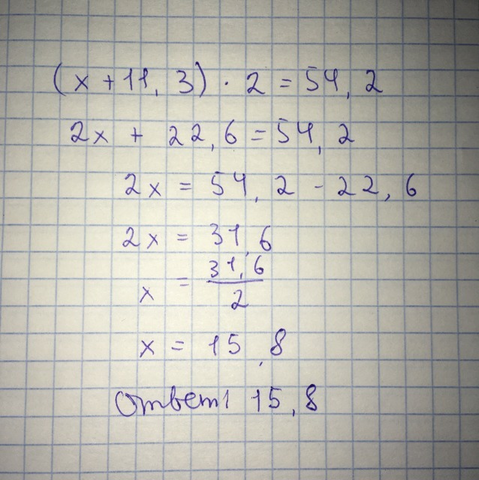 (x + 11, 3) · 2 = 54, 2
2x + 22, 6 = 54, 2
2x = 54, 2 - 22, 6
2x = 31, 6
x = 31, 6 / 2
x = 15, 8
Ответ: 15, 8